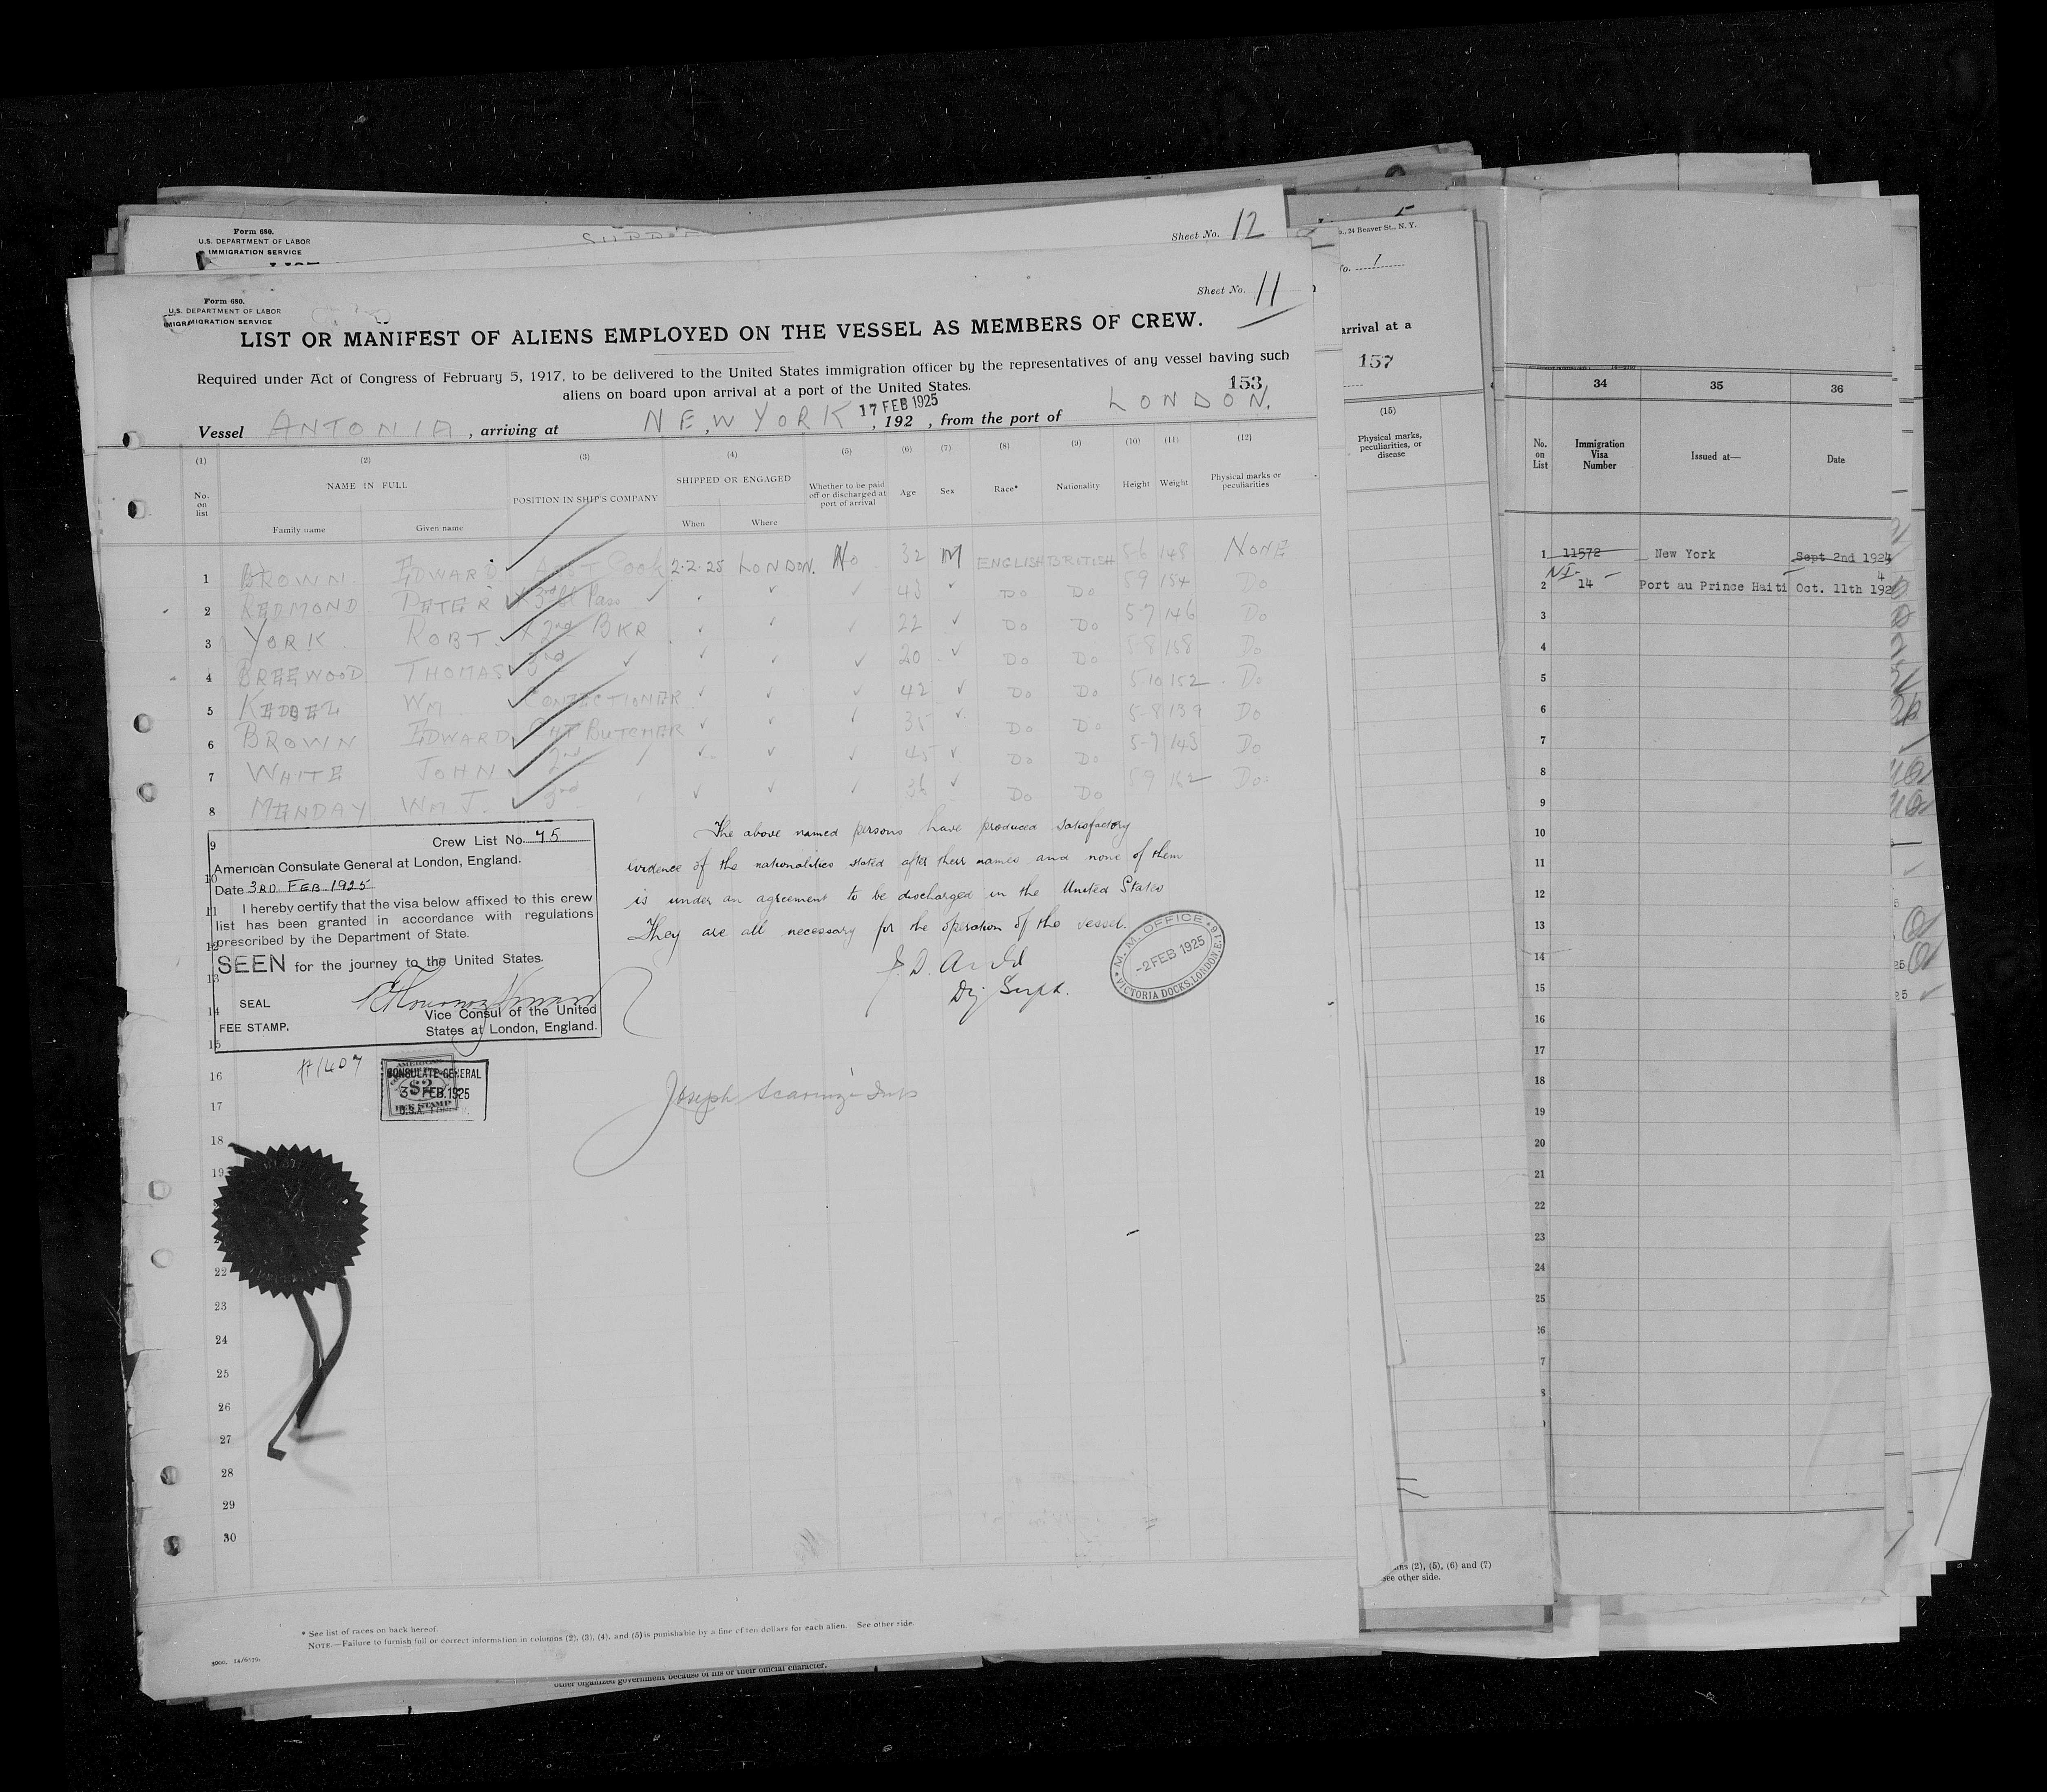 Form 680.
U.S. DEPARTMENT OF LABOR
IMMIGRATION SERVICE
Sheet No. 12
Form 680.
U.S. DEPARTMENT OF LABOR
MIGRATION SERVICE
Sheet No. 11
LIST OR MANIFEST OF ALIENS EMPLOYED ON THE VESSEL AS MEMBERS OF CREW.
Required under Act of Congress of February 5, 1917, to be delivered to the United States immigration officer by the representatives of any vessel having such
aliens on board upon arrival at a port of the United States.
153
Vessel ANTONIA, arriving at NEW YORK 17 FEB 1925, 192 , from the port of LONDON.
(1) (2) (3) (4) (5) (6) (7) (8) (9) (10) (11) (12)
No. on list
NAME IN FULL
Family name Given name
POSITION IN SHIP'S COMPANY
SHIPPED OR ENGAGED
When Where
Whether to be paid off or discharged at port of arrival
Age Sex Race* Nationality Height Weight
Physical marks or peculiarities
1 BROWN EDWARD Asst Cook 2.2.25 LONDON. No 32 M ENGLISH BRITISH 5-6 148 NONE
2 REDMOND PETER X 3rd Cl Pass ✓ ✓ ✓ ✓ 43 ✓ Do Do 5 9 154 Do
3 YORK ROBT. X 2nd BKR ✓ ✓ ✓ 22 ✓ Do Do 5-7 146 Do
4 BREEWOOD THOMAS 3rd ✓ ✓ ✓ ✓ 20 ✓ Do Do 5-8 158 Do
5 WM CONFECTIONER ✓ ✓ ✓ 42 ✓ Do Do 5-10 152 Do
6 BROWN EDWARD BUTCHER ✓ ✓ ✓ 35 ✓ Do Do 5-8 139 Do
7 WHITE JOHN 2nd ✓ ✓ ✓ 45 ✓ Do Do 143 Do
8 MENDAY WM J. 3rd ✓ ✓ ✓ 36 ✓ Do Do 5 9 162 Do
The above named persons have produced satisfactory
evidence of the nationalities stated after their names and none of them
is under an agreement to be discharged in the United States
They are all necessary for the operation of the vessel.
Dy Supt.
M. M. OFFICE
-2 FEB 1925
VICTORIA DOCKS, LONDON, E.16
9
Crew List No. 45
American Consulate General at London, England.
10
Date 3RD FEB. 1925
11
I hereby certify that the visa below affixed to this crew
list has been granted in accordance with regulations
12
prescribed by the Department of State.
SEEN for the journey to the United States.
13
SEAL
14
Vice Consul of the United
FEE STAMP.
States at London, England.
15
16
#1407
AMERICAN
CONSULATE-GENERAL
$2
3 FEB. 1925
FEE STAMP
17
Joseph Scarinzi Insp
18
19
22
23
24
25
26
27
28
29
30
* See list of races on back hereof.
NOTE.—Failure to furnish full or correct information in columns (2), (3), (4), and (5) is punishable by a fine of ten dollars for each alien. See other side.
5000. 14/6579.
other organized government because of his or their official character.
24 Beaver St., N. Y.
1
arrival at a
157
(15)
Physical marks, peculiarities, or disease
(2), (5), (6) and (7)
see other side.
34 35 36
No. on List
Immigration Visa Number
Issued at—
Date
1 11572 New York Sept 2nd 1924
2 NI- 14 Port au Prince Haiti Oct. 11th 1924
3
4
5
6
7
8
9
10
11
12
13
14
15
16
17
18
19
20
21
22
23
24
25
26
7
8